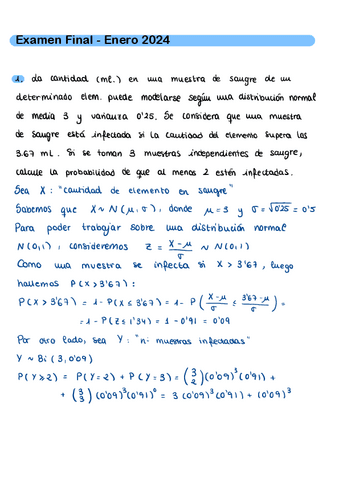 Examen Final - Enero 2024
1. La cantidad (ml.) en una muestra de sangre de un
determinado elem. puede modelarse según una distribución normal
de media 3 y varianza 0'25. Se considera que una muestra
de sangre está infectada si la cantidad del elemento supera los
3.67 ml. Si se toman 3 muestras independientes de sangre,
calcule la probabilidad de que al menos 2 estén infectadas.
Sea X: "cantidad de elemento en sangre"
Sabemos que X ~ N(μ, σ), donde μ = 3 y σ = √0'25 = 0'5
Para poder trabajar sobre una distribución normal
N(0,1), consideremos Z = (X-μ)/σ ~ N(0,1)
Como una muestra se infecta si X > 3'67, luego
hallemos P(X > 3'67):
P(X > 3'67) = 1 - P(X ≤ 3'67) = 1 - P((X-μ)/σ ≤ (3'67-μ)/σ) =
= 1 - P(Z ≤ 1'34) = 1 - 0'91 = 0'09
Por otro lado, sea Y: "nº muestras infectadas"
Y ~ Bi(3, 0'09)
P(Y ≥ 2) = P(Y = 2) + P(Y = 3) = (3 2)(0'09)³(0'91) +
+ (3 3)(0'09)³(0'91)⁰ = 3(0'09)³(0'91) + (0'09)³